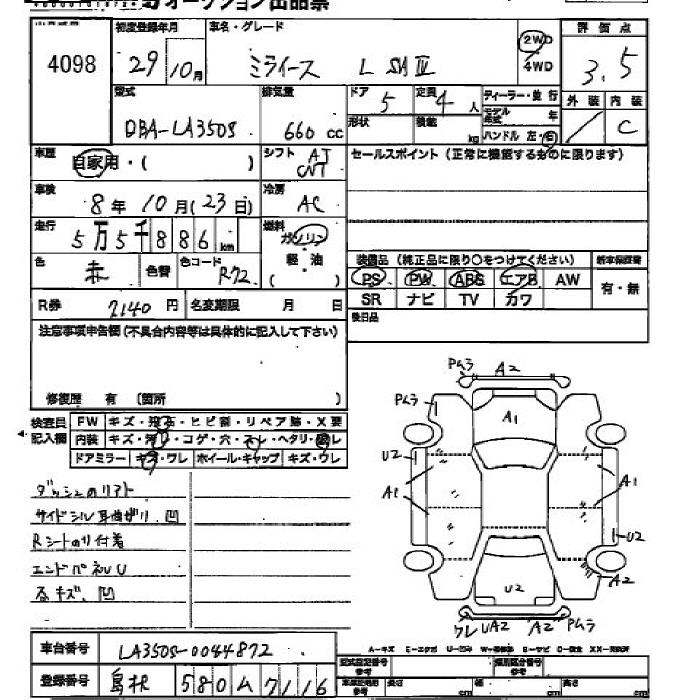 オークション出品票
4098
初度登録年月
29年10月
車名・グレード
ミライース L SAⅣ
2WD
4WD
評価点
3.5
型式
DBA-LA350S
排気量
660 cc
ドア 5
定員 4 人
形状
積載 kg
ディーラー・並行
モデル年式 年
ハンドル 左・右
外装 内装
C
車歴
自家用・( )
シフト AT
CVT
セールスポイント(正常に機能するものに限ります)
車検
8年10月(23日)
冷房
AC
走行
5万5千886km
燃料
ガソリン
軽・油
( )
色
赤
色替
色コード
R72
装備品(純正品に限り○をつけてください)
新車保証書
PS PW ABS エアB AW
SR ナビ TV カワ
有・無
後日品
R券 7140 円
名変期限 月 日
注意事項申告欄(不具合内容等は具体的に記入して下さい)
修復歴 有 〔箇所 〕
検査員
記入欄
FW キズ・飛石・ヒビ割・リペア跡・X要
内装 キズ・汚レ・コゲ・穴・スレ・ヘタリ・
ドアミラー キズ・ワレ ホイール・キャップ キズ・ワレ
ダッシュのリフト
サイドシル耳曲がり、凹
Rシートのリ付着
エンドパネルU
キズ、凹
Pムラ A2
Pムラ
A1
U2
A1
A1
U2
A2
U2
ワレ UA2 A2 Pムラ
車台番号 LA350S-0044872
登録番号 島根 580 ム 7116
A-キズ E-エクボ U-凹み
型式指定番号
参考
類別区分番号
参考
長さ cm
幅 cm
高さ cm